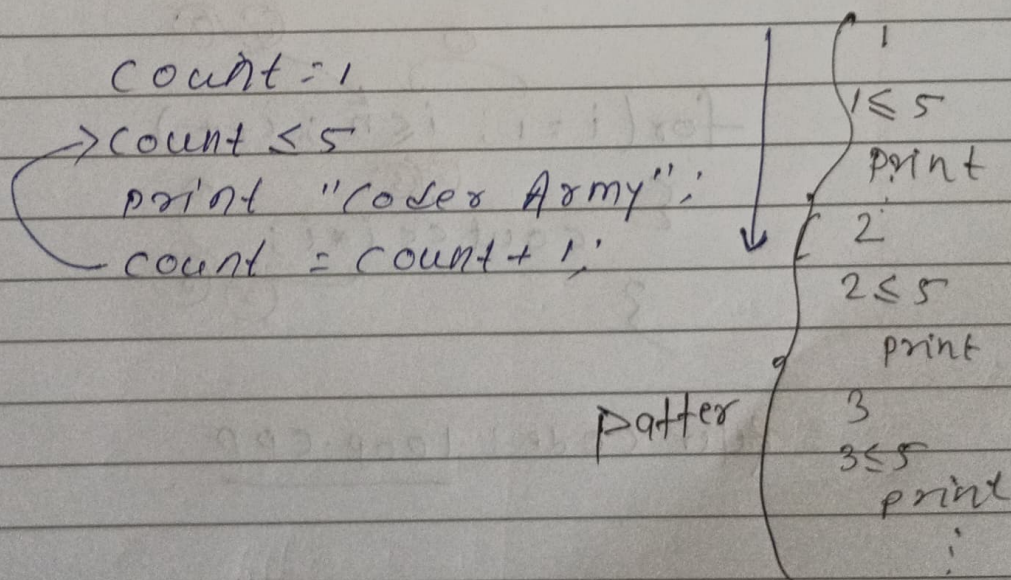 count = 1
count ≤ 5
print "Coder Army";
count = count + 1;
1
1 ≤ 5
print
2
2 ≤ 5
print
patter
3
3 ≤ 5
print